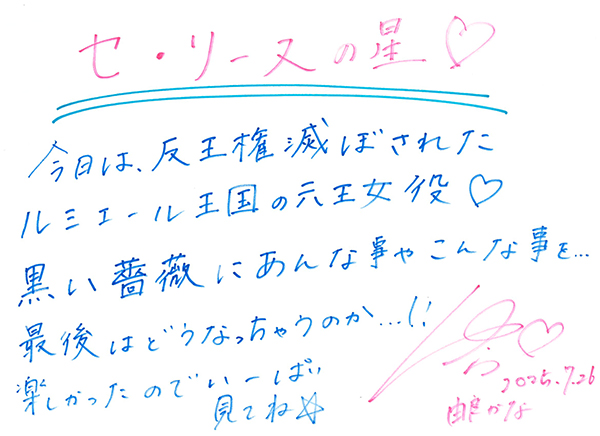 セ・リーヌの星♡
今日は、反王権滅ぼされた
ルミエール王国の元王女役♡
黒い薔薇にあんな事やこんな事を…
最後はどうなっちゃうのか…!!
楽しかったのでいーっぱい
見てね☆
2025.7.26
由良かな